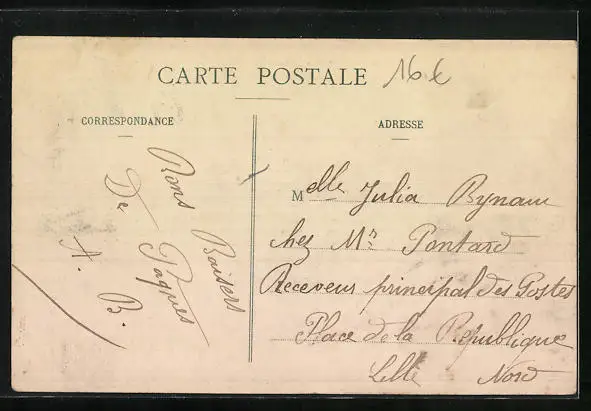 CARTE POSTALE 16 €
CORRESPONDANCE
Bons Baisers
De Paques
A. B.
ADRESSE
Melle Julia Bynam
chez Mr Pontard
Receveur principal des Postes
Place de la République
Lille Nord